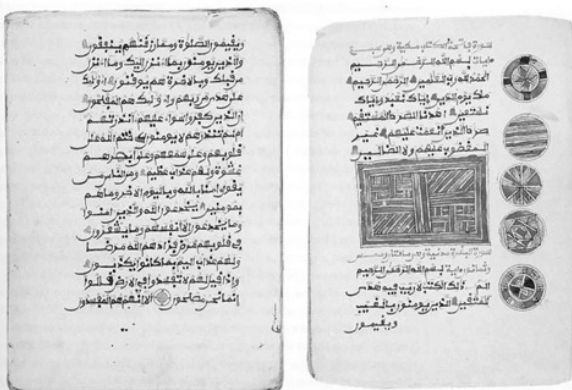 سورة فاتحة الكتاب مكية وهي سبع
ءايات بسم الله الرحمن الرحيم
الحمد لله رب العلمين الرحمن الرحيم
ملك يوم الدين إياك نعبد وإياك
نستعين اهدنا الصراط المستقيم
صراط الذين أنعمت عليهم غير
المغضوب عليهم ولا الضالين
سورة البقرة مدنية وهي مائتان وخمس
وثمانون ءاية بسم الله الرحمن الرحيم
الم ذلك الكتب لا ريب فيه هدى
للمتقين الذين يومنون بالغيب
ويقيمون
ويقيمون الصلوة ومما رزقنهم ينفقون
والذين يومنون بما أنزل إليك وما أنزل
من قبلك وبالاخرة هم يوقنون أوليك
على هدى من ربهم وأوليك هم المفلحون
إن الذين كفروا سواء عليهم ءانذرتهم
أم لم تنذرهم لا يومنون ختم الله على
قلوبهم وعلى سمعهم وعلى أبصرهم
غشوة ولهم عذاب عظيم ومن الناس من
يقول ءامنا بالله وباليوم الاخر وما هم
بمومنين يخدعون الله والذين ءامنوا
وما يخدعون إلا أنفسهم وما يشعرون
في قلوبهم مرض فزادهم الله مرضا
ولهم عذاب اليم بما كانوا يكذبون
وإذا قيل لهم لا تفسدوا في الارض قالوا
إنما نحن مصلحون الا انهم هم المفسدون